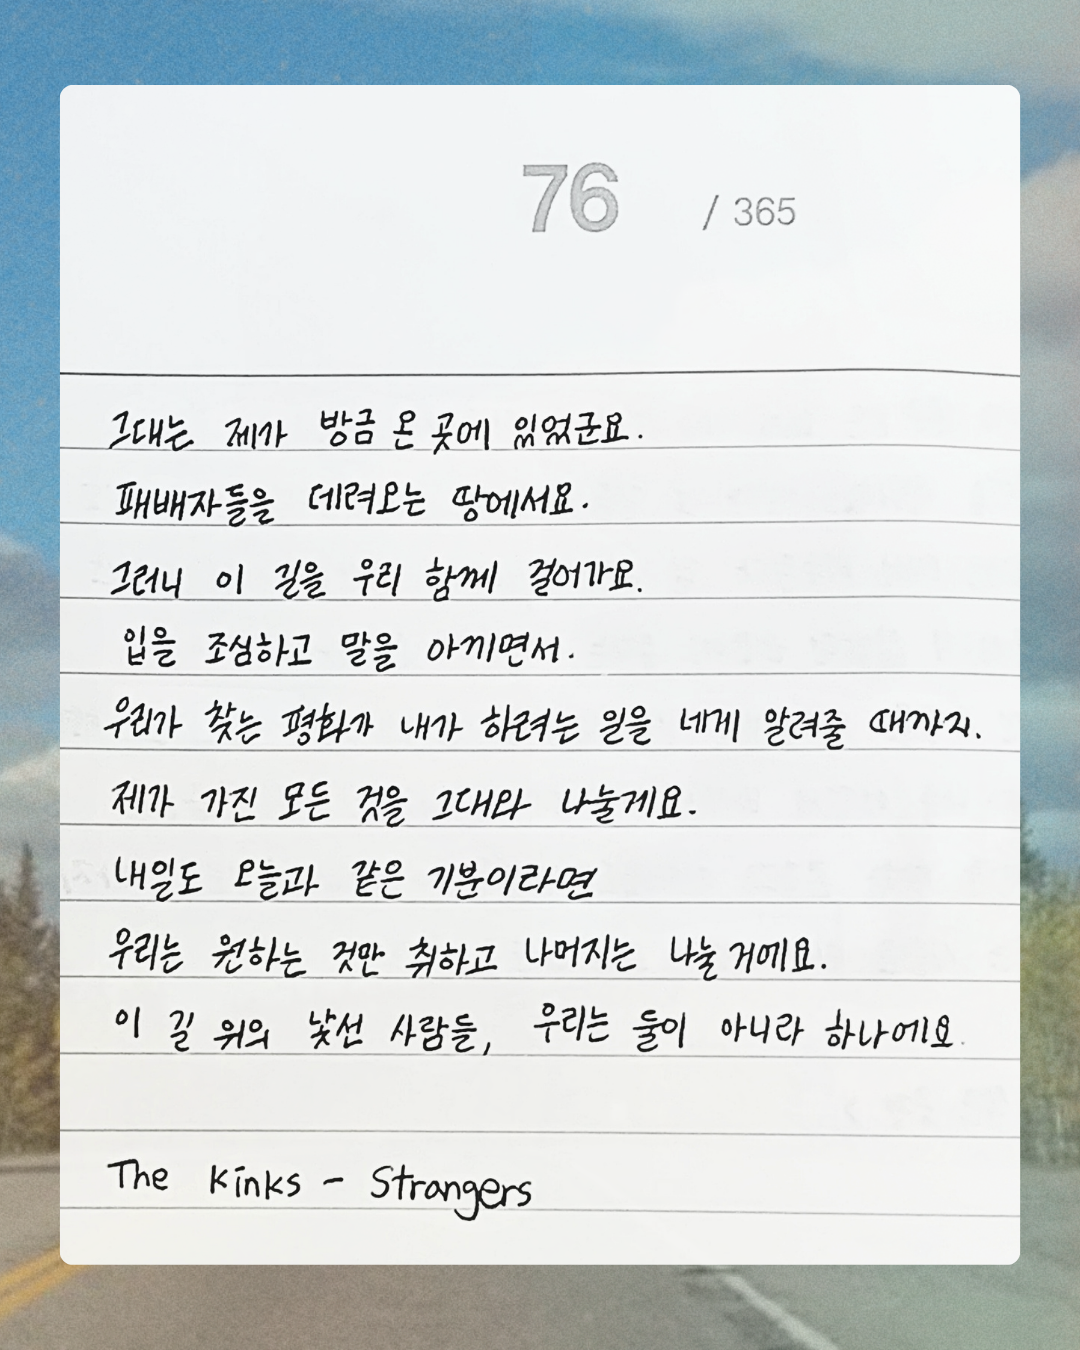 76 / 365
그대는 제가 방금 온 곳에 있었군요.
패배자들을 데려오는 땅에서요.
그러니 이 길을 우리 함께 걸어가요.
입을 조심하고 말을 아끼면서.
우리가 찾는 평화가 내가 하려는 일을 네게 알려줄 때까지.
제가 가진 모든 것을 그대와 나눌게요.
내일도 오늘과 같은 기분이라면
우리는 원하는 것만 취하고 나머지는 나눌 거에요.
이 길 위의 낯선 사람들, 우리는 둘이 아니라 하나에요.
The Kinks - Strangers